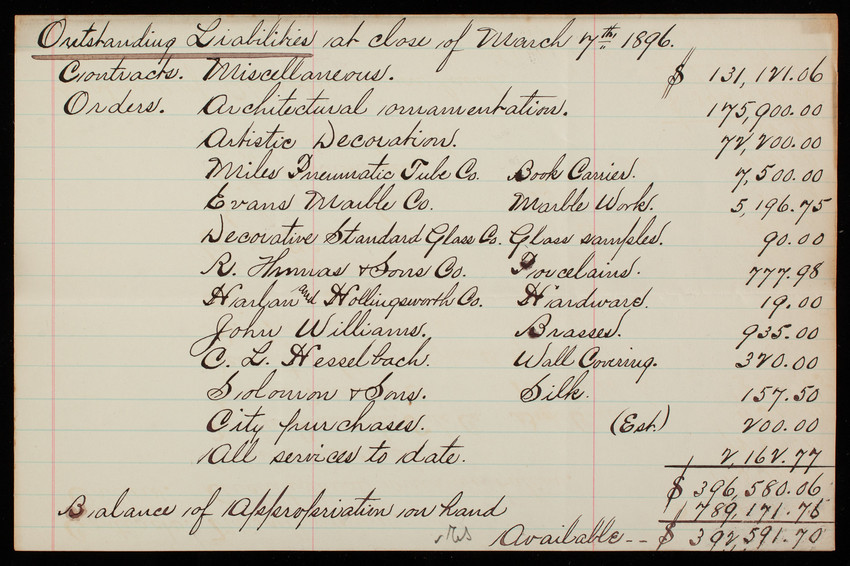 Outstanding Liabilities at close of March 7th 1896.
Contracts. Miscellaneous. $ 131,121.06
Orders. Architectural ornamentation. 175,900.00
Artistic Decoration. 72,200.00
Miles Pneumatic Tube Co. Book Carrier. 7,500.00
Evans Marble Co. Marble Work. 5,196.75
Decorative Standard Glass Co. Glass samples. 90.00
R. Thomas & Sons Co. Porcelains. 777.98
Harlan and Hollingsworth Co. Hardware. 19.00
John Williams. Brasses. 935.00
C. L. Hesselbach. Wall Covering. 320.00
Solomon & Sons. Silk. 157.50
City purchases. (Est.) 200.00
All services to date. 2,162.77
$ 396,580.06
Balance of Appropriation on hand 789,171.76
Available -- $ 392,591.70